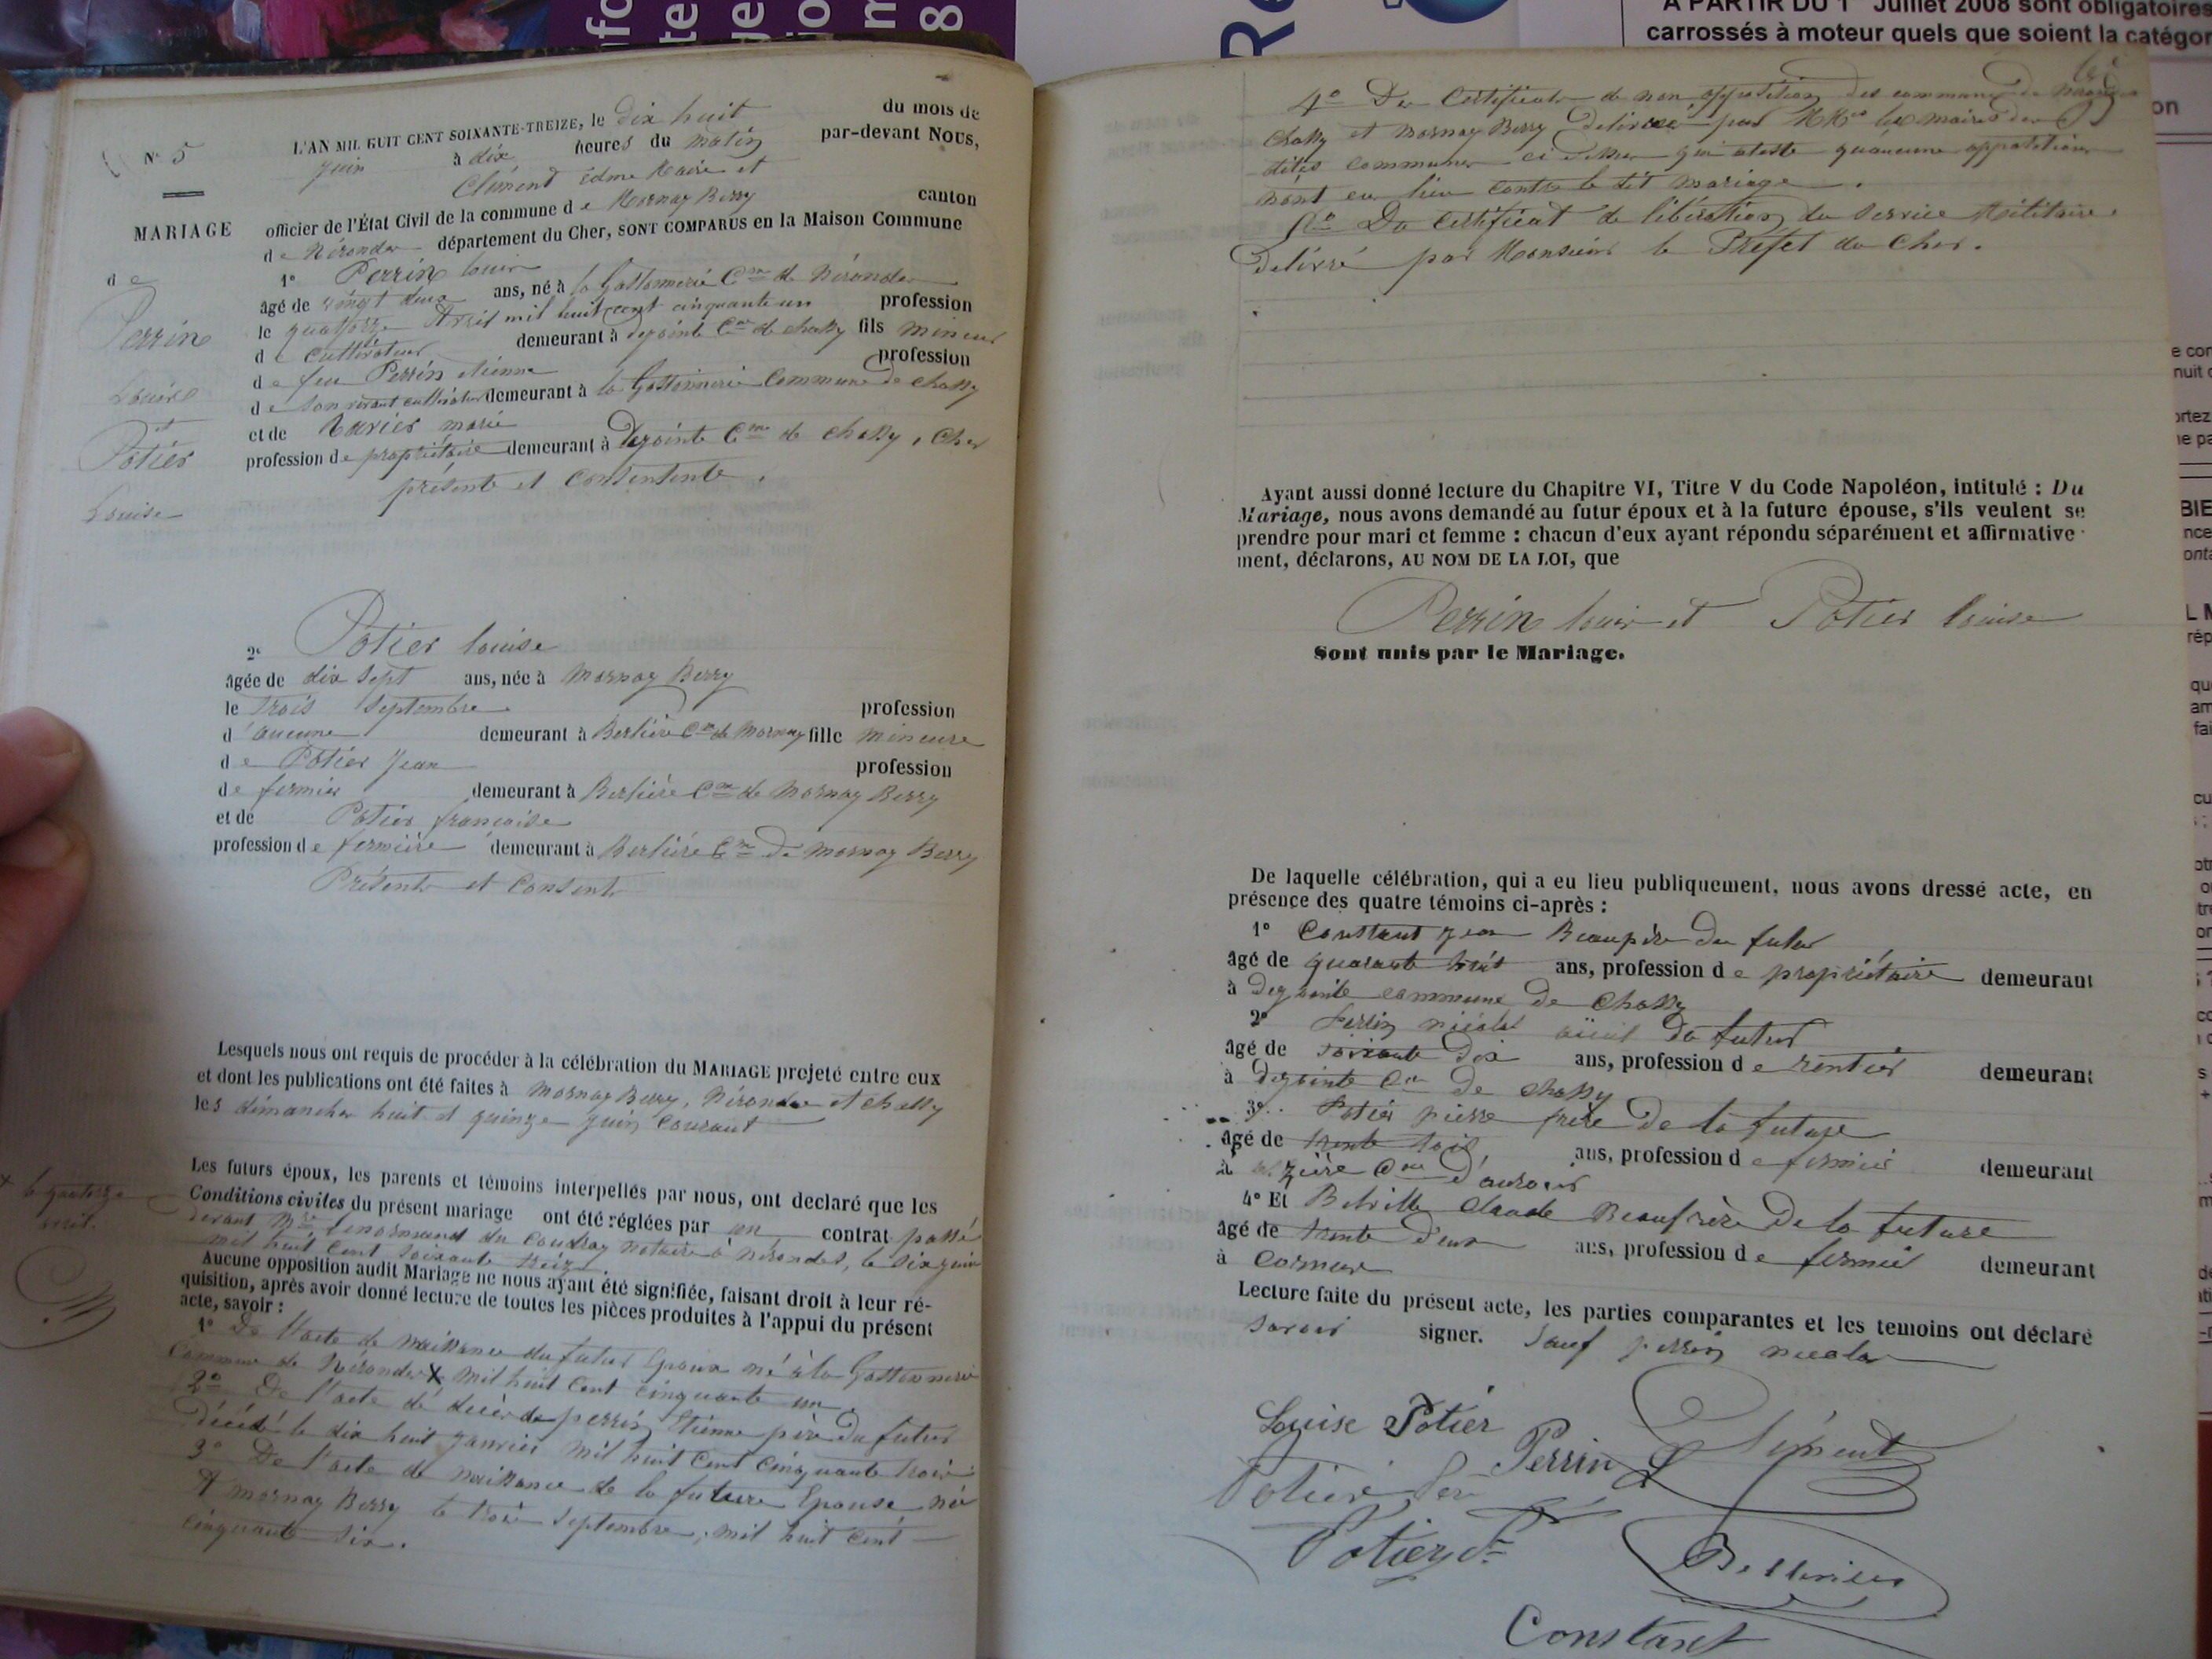 A PARTIR DU 1er Juillet 2008 sont obligatoires
carrossés à moteur quels que soient la catégor
N° 5
MARIAGE
de
Perrin
Louis
et
Potier
Louise
L'AN MIL HUIT CENT SOIXANTE-TREIZE, le dix huit du mois de
juin à dix heures du matin par-devant NOUS,
Clément Edme Maire et
officier de l'État Civil de la commune de Mornay Berry canton
de Nérondes département du Cher, SONT COMPARUS en la Maison Commune
1° Perrin Louis
âgé de vingt deux ans, né à la Gattonnerie Cne de Nérondes
le quatorze Avril mil huit cent cinquante un profession
de cultivateur demeurant à Dejointe Cne de Chassy fils mineur
de feu Perrin etienne profession
de son vivant cultivateur demeurant à la Gattonnerie Commune de Chassy
et de marie
profession de propriétaire demeurant à Dejointe Cne de Chassy, Cher
présente et Consentente.
2° Potier Louise
âgée de dix sept ans, née à Mornay Berry
le trois Septembre profession
d'aucune demeurant à Berlière Cne de Mornay fille mineure
de Potier Jean profession
de fermier demeurant à Berlière Cne de Mornay Berry
et de Potier francoise
profession de fermière demeurant à Berlière Cne de Mornay Berry
Présents et Consents
Lesquels nous ont requis de procéder à la célébration du MARIAGE projeté entre eux
et dont les publications ont été faites à Mornay Berry, Nérondes et Chassy
les dimanches huit et quinze juin Courant
Les futurs époux, les parents et témoins interpellés par nous, ont declaré que les
Conditions civiles du présent mariage ont été réglées par un contrat passé
devant Mre Lenormand du Coudray notaire à Nérondes, le six juin
mil huit Cent Soixante treize.
Aucune opposition audit Mariage ne nous ayant été signifiée, faisant droit à leur ré-
quisition, après avoir donné lecture de toutes les pièces produites à l'appui du présent
acte, savoir :
1° De l'acte de naissance du futur Epoux né à la Gattonnerie
Commune de Nérondes X mil huit Cent cinquante un.
X le quatorze
avril.
2° De l'acte de décès de perrin Etienne père du futur
décédé le dix huit Janvier mil huit Cent Cinquante trois
3° De l'acte de naissance de la future Epouse née
A Mornay Berry le trois Septembre, mil huit Cent
cinquante six.
4° Des Certificats de non opposition des communes de Nérondes
Chassy et Mornay Berry délivrés par MMrs les maires des
dites communes ci dessus qui ateste quaucune opposition
n'ont eu lieu contre le dit mariage.
5° Du Certificat de libération du Service Militaire.
Delivré par Monsieur le Préfet du Cher.
Ayant aussi donné lecture du Chapitre VI, Titre V du Code Napoléon, intitulé : Du
Mariage, nous avons demandé au futur époux et à la future épouse, s'ils veulent se
prendre pour mari et femme : chacun d'eux ayant répondu séparément et affirmative
ment, déclarons, AU NOM DE LA LOI, que
Perrin Louis et Potier Louise
Sont unis par le Mariage.
De laquelle célébration, qui a eu lieu publiquement, nous avons dressé acte, en
présence des quatre témoins ci-après :
1° Constant Jean Beaupère du futur
âgé de quarante huit ans, profession de propriétaire demeurant
à Dejointe commune de Chassy
2° Perrin nicolas aïeul du futur
âgé de soixante dix ans, profession de rentier demeurant
à Dejointe Cne de Chassy
3° Potier pierre frère de la future
âgé de trente trois ans, profession de fermier demeurant
à Cne d'
4° Et Claude Beaufrère de la future
âgé de trente deux ans, profession de fermier demeurant
à Cornusse
Lecture faite du présent acte, les parties comparantes et les temoins ont déclaré
savoir signer. Sauf perrin nicolas
Louise Potier
Perrin L
Clément
Potier
Potier
Constant